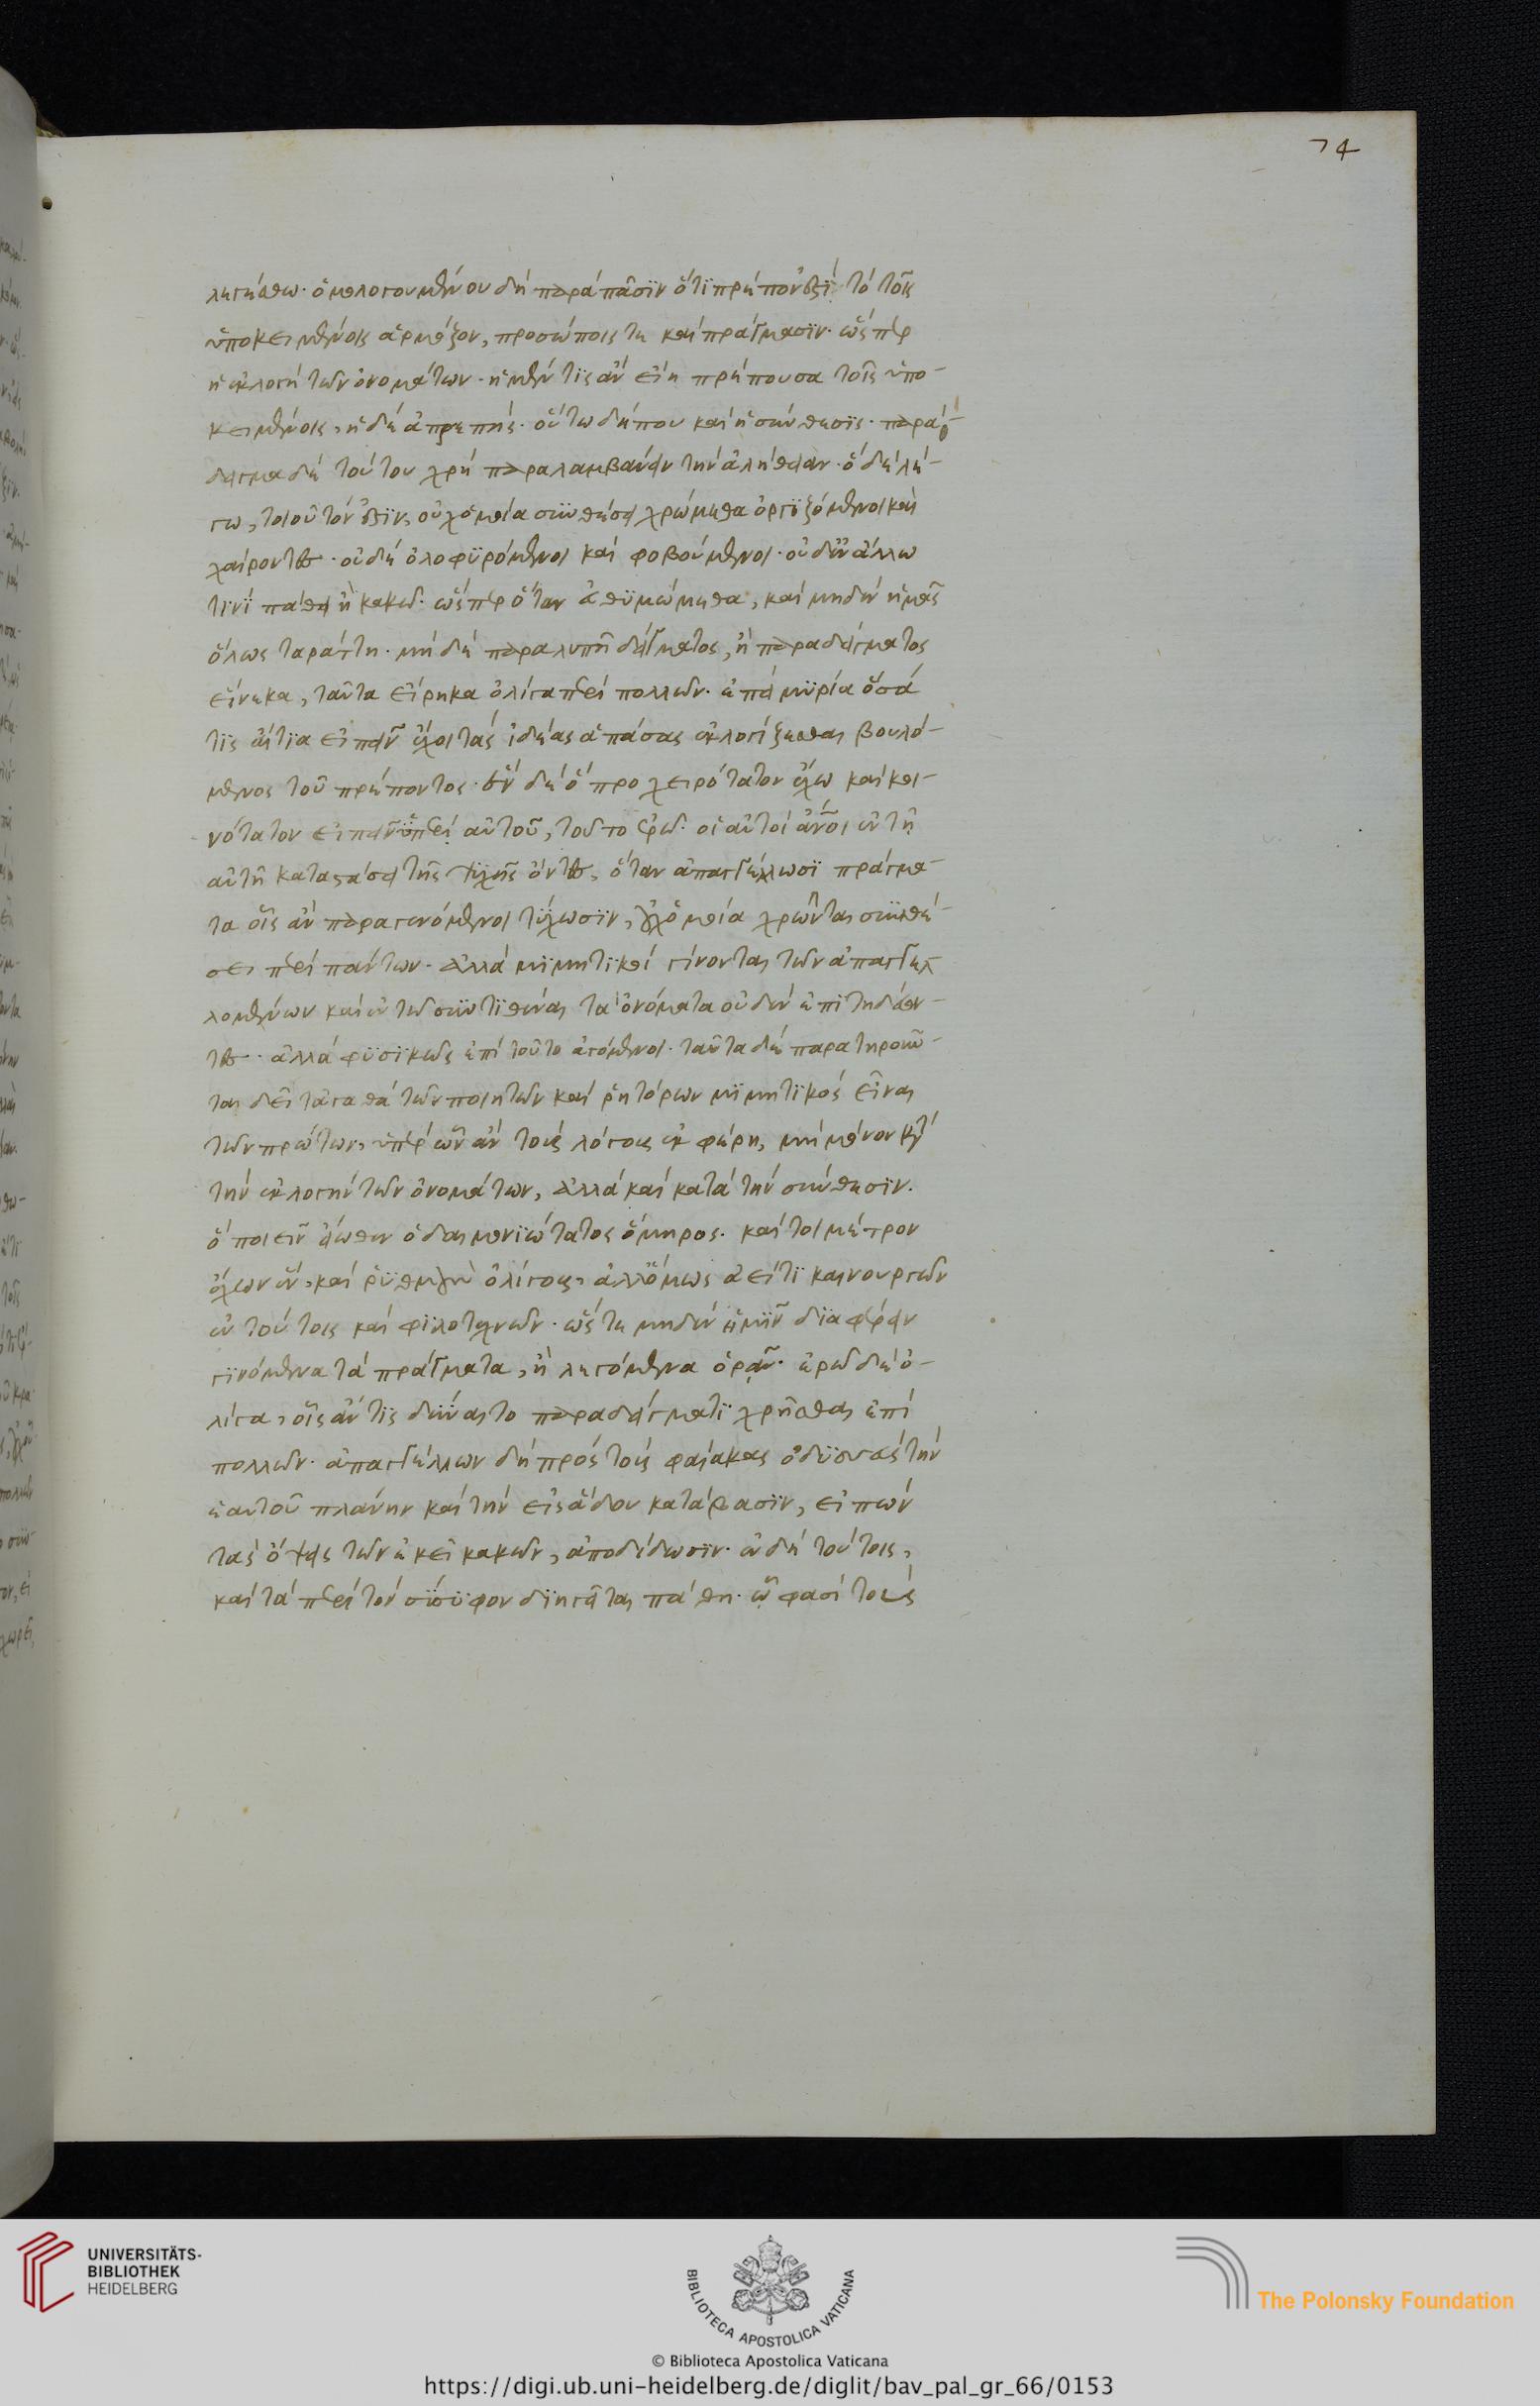 74
λεγέσθω. ὁμολογουμένου δὴ παρὰ πᾶσιν ὅτι πρέπον ἐστὶ τὸ τοῖς
ὑποκειμένοις ἁρμόζον, προσώποις τε καὶ πράγμασιν. ὥσπερ
ἡ ἐκλογὴ τῶν ὀνομάτων. ἡ μέν τις ἂν εἴη πρέπουσα τοῖς ὑπο-
κειμένοις, ἡ δὲ ἀπρεπής. οὕτω δήπου καὶ ἡ σύνθεσις. παρά-
δειγμα δὲ τούτου χρὴ παραλαμβάνειν τὴν ἀλήθειαν. ὃ δὲ λέ-
γω, τοιοῦτόν ἐστιν, οὐχ ὁμοία συνθέσει χρώμεθα ὀργιζόμενοι καὶ
χαίροντες. οὐδὲ ὀλοφυρόμενοι καὶ φοβούμενοι. οὐδ' ἐν ἄλλω
τινὶ πάθει ἢ κακῶ. ὥσπερ ὅταν ἀθυμώμεθα, καὶ μηδὲν ἡμᾶς
ὅλως ταράττη. μὴ δὲ παραλυπῆ δείγματος, ἢ παραδείγματος
εἵνεκα, ταῦτα εἴρηκα ὀλίγα περὶ πολλῶν. ἐπεὶ μυρία ὅσά
τις αἴτια εἰπεῖν ἔχοι τὰς ἰδέας ἁπάσας ἐκλογίζεσθαι βουλό-
μενος τοῦ πρέποντος. ἓν δὲ ὃ προχειρότατον ἔχω καὶ κοι-
νότατον εἰπεῖν ὑπὲρ αὐτοῦ, τοῦτο ἐρῶ. οἱ αὐτοὶ ἄνθρωποι ἐν τῆ
αὐτῆ καταστάσει τῆς ψυχῆς ὄντες, ὅταν ἀπαγγέλλωσι πράγμα-
τα οἷς ἂν παραγενόμενοι τύχωσιν, οὐχ ὁμοία χρῶνται συνθέ-
σει περὶ πάντων. ἀλλὰ μιμητικοὶ γίνονται τῶν ἀπαγγελ-
λομένων καὶ ἐν τῶ συντιθέναι τὰ ὀνόματα οὐδὲν ἐπιτηδεύον-
τες. ἀλλὰ φυσικῶς ἐπὶ τοῦτο ἀγόμενοι. ταῦτα δὲ παρατηροῦν-
ται δεῖ τἀγαθὰ τῶν ποιητῶν καὶ ῥητόρων μιμητικὸς εἶναι
τῶν πρώτων, ὑπὲρ ὧν ἂν τοὺς λόγους ἐκφέρη, μὴ μόνον κατὰ
τὴν ἐκλογὴν τῶν ὀνομάτων, ἀλλὰ καὶ κατὰ τὴν σύνθεσιν.
ὃ ποιεῖν εἴωθεν ὁ δαιμονιώτατος ὅμηρος. καίτοι μέτρον
ἔχων ἓν, καὶ ῥυθμοὺς ὀλίγους, ἀλλ' ὅμως ἀεί τι καινουργῶν
ἐν τούτοις καὶ φιλοτεχνῶν. ὥστε μηδὲν ἡμῖν διαφέρειν
γινόμενα τὰ πράγματα, ἢ λεγόμενα ὁρᾶν. ἐρῶ δὲ ὀ-
λίγα, οἷς ἄν τις δύναιτο παραδείγματι χρῆσθαι ἐπὶ
πολλῶν. ἀπαγγέλλων δὴ πρὸς τοὺς φαίακας ὀδυσσεὺς τὴν
ἑαυτοῦ πλάνην καὶ τὴν εἰς ἅδου κατάβασιν, εἰπὼν
τὰς ὄψεις τῶν ἐκεῖ κακῶν, ἀποδίδωσιν. ἐν δὴ τούτοις,
καὶ τὰ περὶ τὸν σίσυφον διηγεῖται πάθη. ᾧ φασὶ τοὺς
UNIVERSITÄTS-
BIBLIOTHEK
HEIDELBERG
BIBLIOTECA APOSTOLICA VATICANA
© Biblioteca Apostolica Vaticana
The Polonsky Foundation
https://digi.ub.uni-heidelberg.de/diglit/bav_pal_gr_66/0153